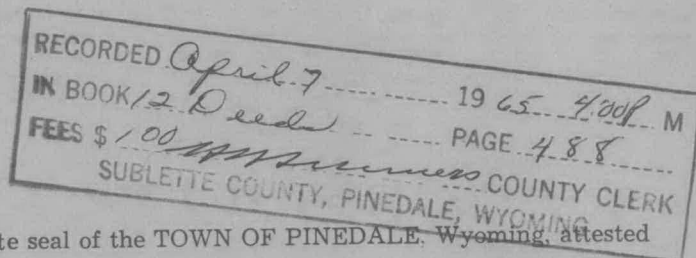 RECORDED April 7 1965 4:00P M
IN BOOK 12 Deeds PAGE 488
FEES $1.00 COUNTY CLERK
SUBLETTE COUNTY, PINEDALE, WYOMING
te seal of the TOWN OF PINEDALE, Wyoming, attested